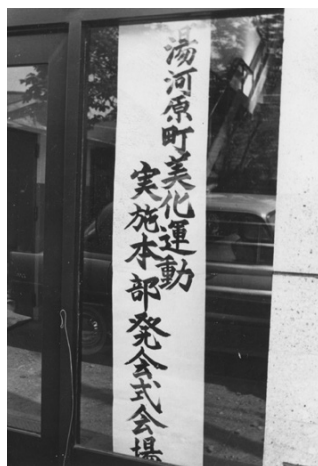 湯河原町美化運動
実施本部発会式会場